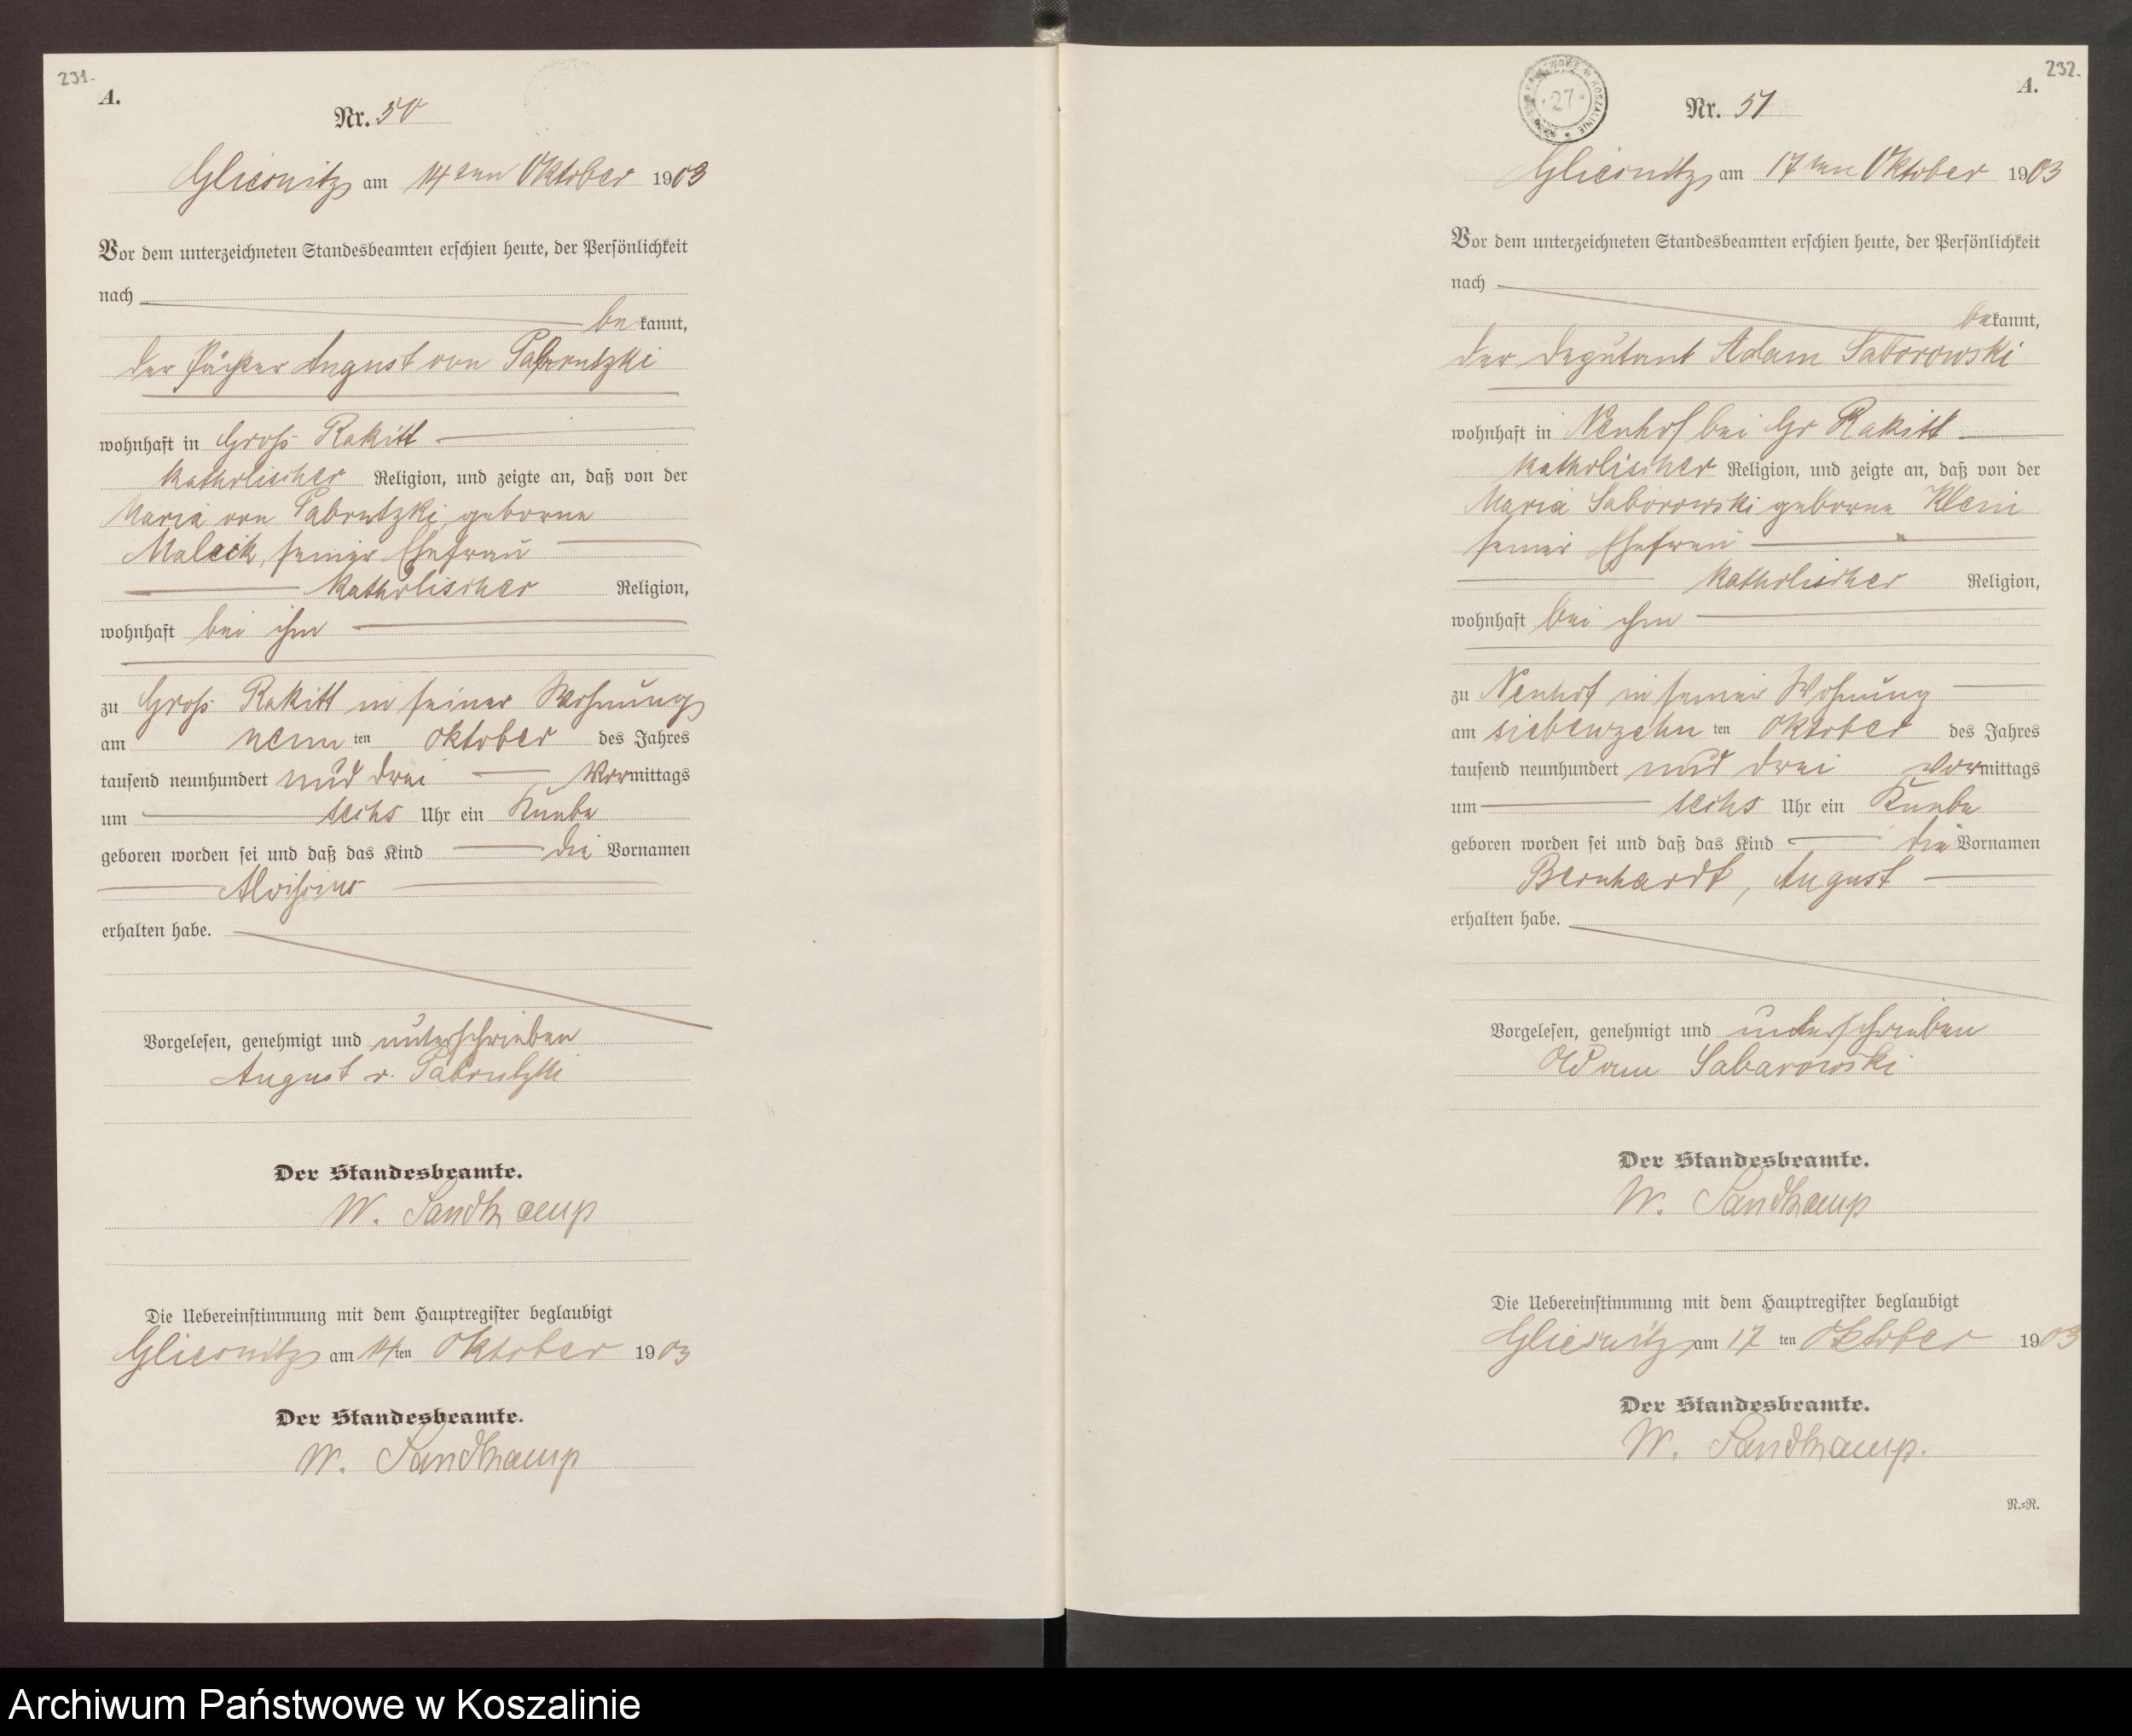 231.
A.
Nr. 50
Gliesnitz am 14ten Oktober 1903
Vor dem unterzeichneten Standesbeamten erschien heute, der Persönlichkeit
nach
bekannt,
der Pächter August von
wohnhaft in Groß Rakitt
katholischer Religion, und zeigte an, daß von der
Maria von geborne
Malcik, seiner Ehefrau
katholischer Religion,
wohnhaft bei ihm
zu Groß Rakitt in seiner Wohnung
am neun ten Oktober des Jahres
tausend neunhundert und drei Vormittags
um sechs Uhr ein Knabe
geboren worden sei und daß das Kind die Vornamen
Aloisius
erhalten habe.
Vorgelesen, genehmigt und unterschrieben
August v.
Der Standesbeamte.
W. Sandkamp
Die Uebereinstimmung mit dem Hauptregister beglaubigt
Gliesnitz am 14ten Oktober 1903
Der Standesbeamte.
W. Sandkamp
232.
A.
27
Nr. 51
Gliesnitz am 17ten Oktober 1903
Vor dem unterzeichneten Standesbeamten erschien heute, der Persönlichkeit
nach
bekannt,
der Deputant Adam Saborowski
wohnhaft in Neuhof bei Gr Rakitt
katholischer Religion, und zeigte an, daß von der
Maria Saborowski geborne Klein
seiner Ehefrau
katholischer Religion,
wohnhaft bei ihm
zu Neuhof in seiner Wohnung
am siebenzehn ten Oktober des Jahres
tausend neunhundert und drei Vormittags
um sechs Uhr ein Knabe
geboren worden sei und daß das Kind die Vornamen
Bernhardt, August
erhalten habe.
Vorgelesen, genehmigt und unterschrieben
Adam Sabarowski
Der Standesbeamte.
W. Sandkamp
Die Uebereinstimmung mit dem Hauptregister beglaubigt
Gliesnitz am 17 ten Oktober 1903
Der Standesbeamte.
W. Sandkamp.
N.=R.
Archiwum Państwowe w Koszalinie